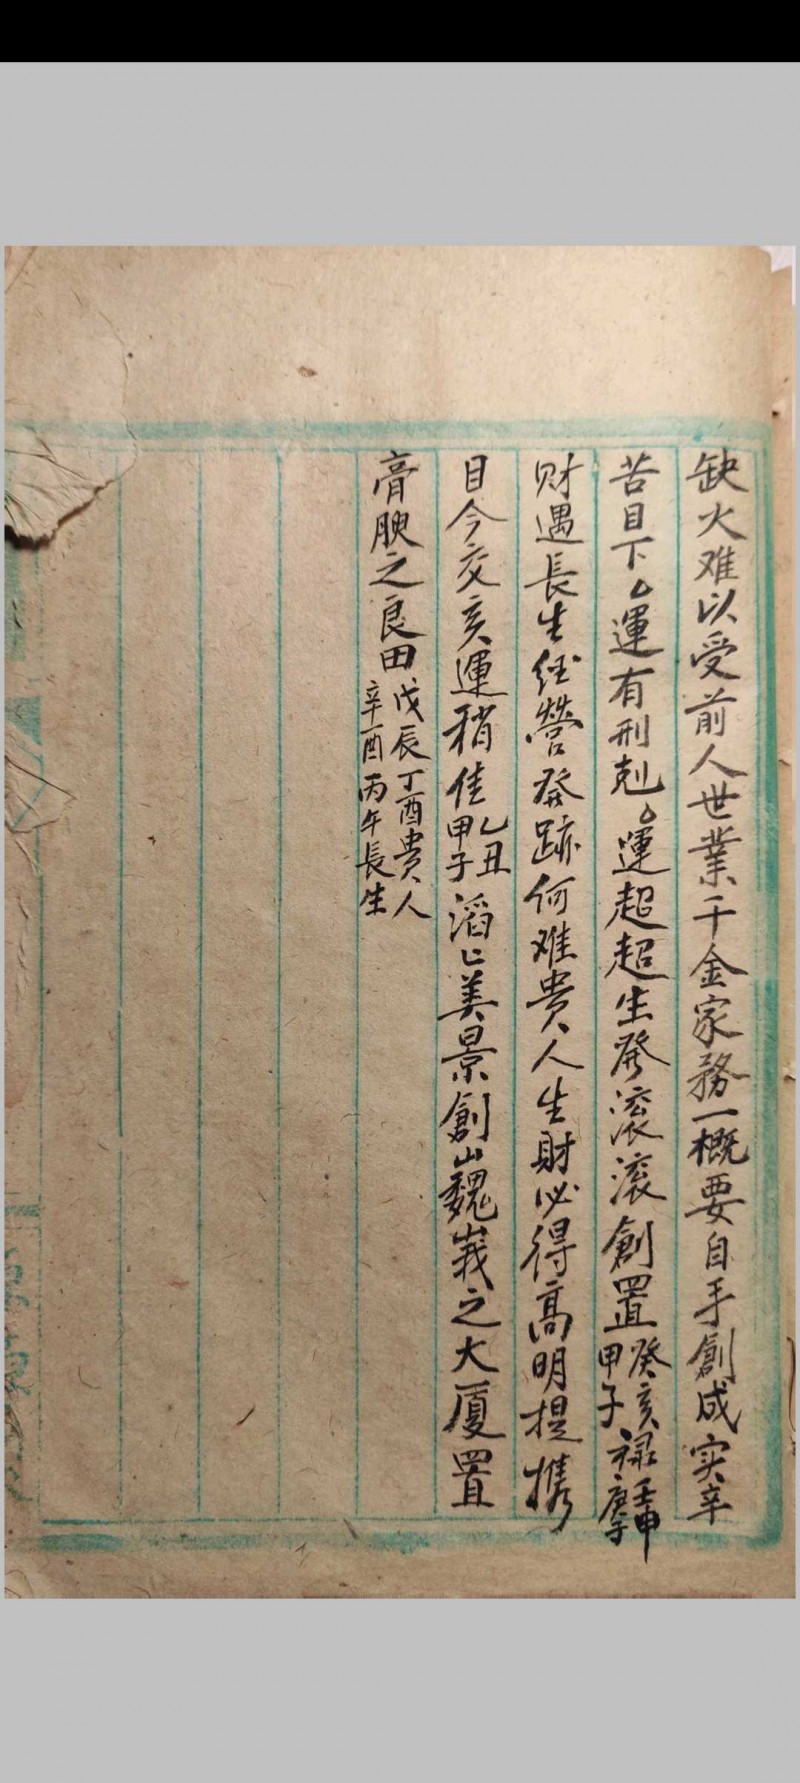 缺火难以受前人世業千金家務一概要自手創成实辛
苦目下。運有刑剋。運超超生發滚滚創置癸亥甲子禄壬申庚子
财遇長生经營發跡何难貴人生財必得高明提携
目今交亥運稍佳乙丑甲子滔〻美景創巍峩之大厦置
膏腴之良田戊辰丁酉貴人辛酉丙午長生